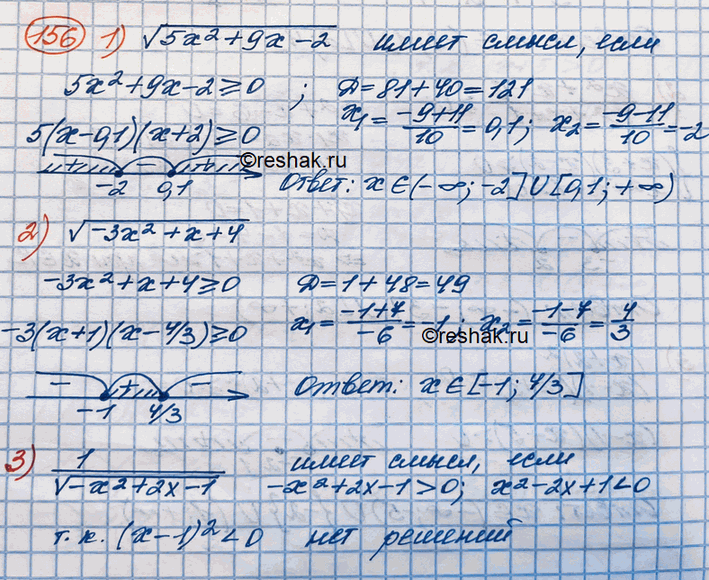 156 1) √(5x²+9x-2) имеет смысл, если
5x²+9x-2≥0 ; Д=81+40=121
5(x-0,1)(x+2)≥0 x₁=(-9+11)/10=0,1; x₂=(-9-11)/10=-2
+ - +
-2 0,1
©reshak.ru
Ответ: x∈(-∞;-2]∪[0,1;+∞)
2) √(-3x²+x+4)
-3x²+x+4≥0 Д=1+48=49
-3(x+1)(x-4/3)≥0 x₁=(-1+7)/-6=-1; x₂=(-1-7)/-6=4/3
©reshak.ru
- + -
-1 4/3
Ответ: x∈[-1; 4/3]
3) 1/√(-x²+2x-1) имеет смысл, если
-x²+2x-1>0; x²-2x+1<0
т.к. (x-1)²<0 нет решений